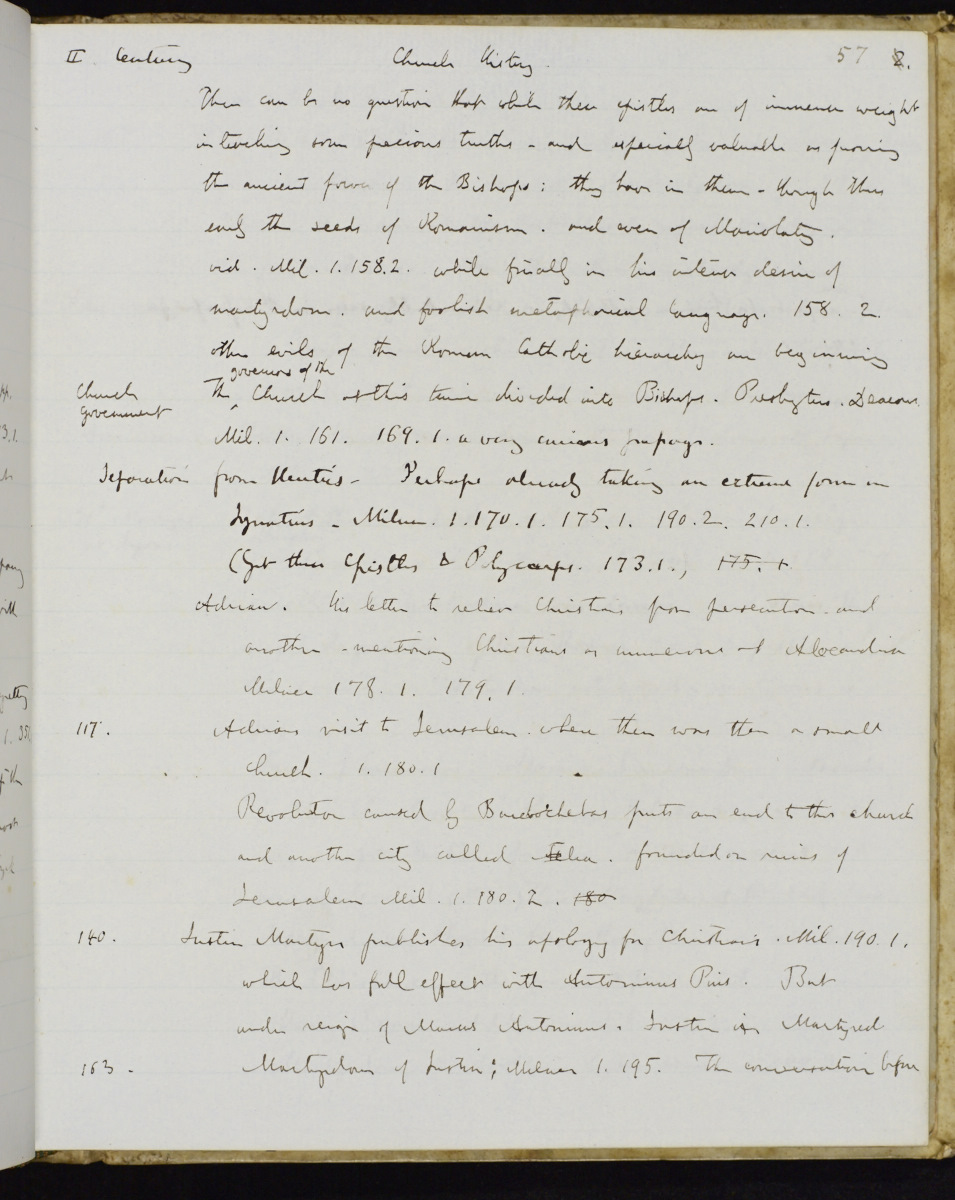 II Century Church History. 57 2.
There can be no question that while these epistles are of immense weight
in teaching some precious truths - and especially valuable as proving
the ancient power of the Bishops: they have in them - though thus
early the seeds of Romanism. and even of Mariolatry.
vid. Mil. 1. 158.2. while finally in his intense desire of
martyrdom. and foolish metaphorical language. 158. 2.
other evils of the Roman Catholic hierarchy are beginning
governors of the
Church The Church at this time divided into Bishops. Presbyters. Deacons.
government
Mil. 1. 161. 169. 1. a very curious
Separation from Heretics - Perhaps already taking an extreme form in
Ignatius - Milner. 1. 170. 1. 175. 1. 190. 2. 210. 1.
(Get these Epistles & Polycarps. 173. 1., 175. 1.
Adrian. His letter to relieve Christians from persecution and
another - mentioning Christians as numerous at Alexandria
Milner 178. 1. 179. 1.
117. Adrians visit to Jerusalem. where there was then a small
church. 1. 180. 1
Revolution caused by Barchochebas puts an end to this church
and another city called Aelia. founded on ruins of
Jerusalem Mil. 1. 180. 2. 180
140. Justin Martyr publishes his apology for Christians. Mil. 190. 1.
which has full effect with Antoninus Pius. But
under reign of Marcus Antoninus. Justin is Martyred
163. Martyrdom of Justin; Milner 1. 195. The conversation before